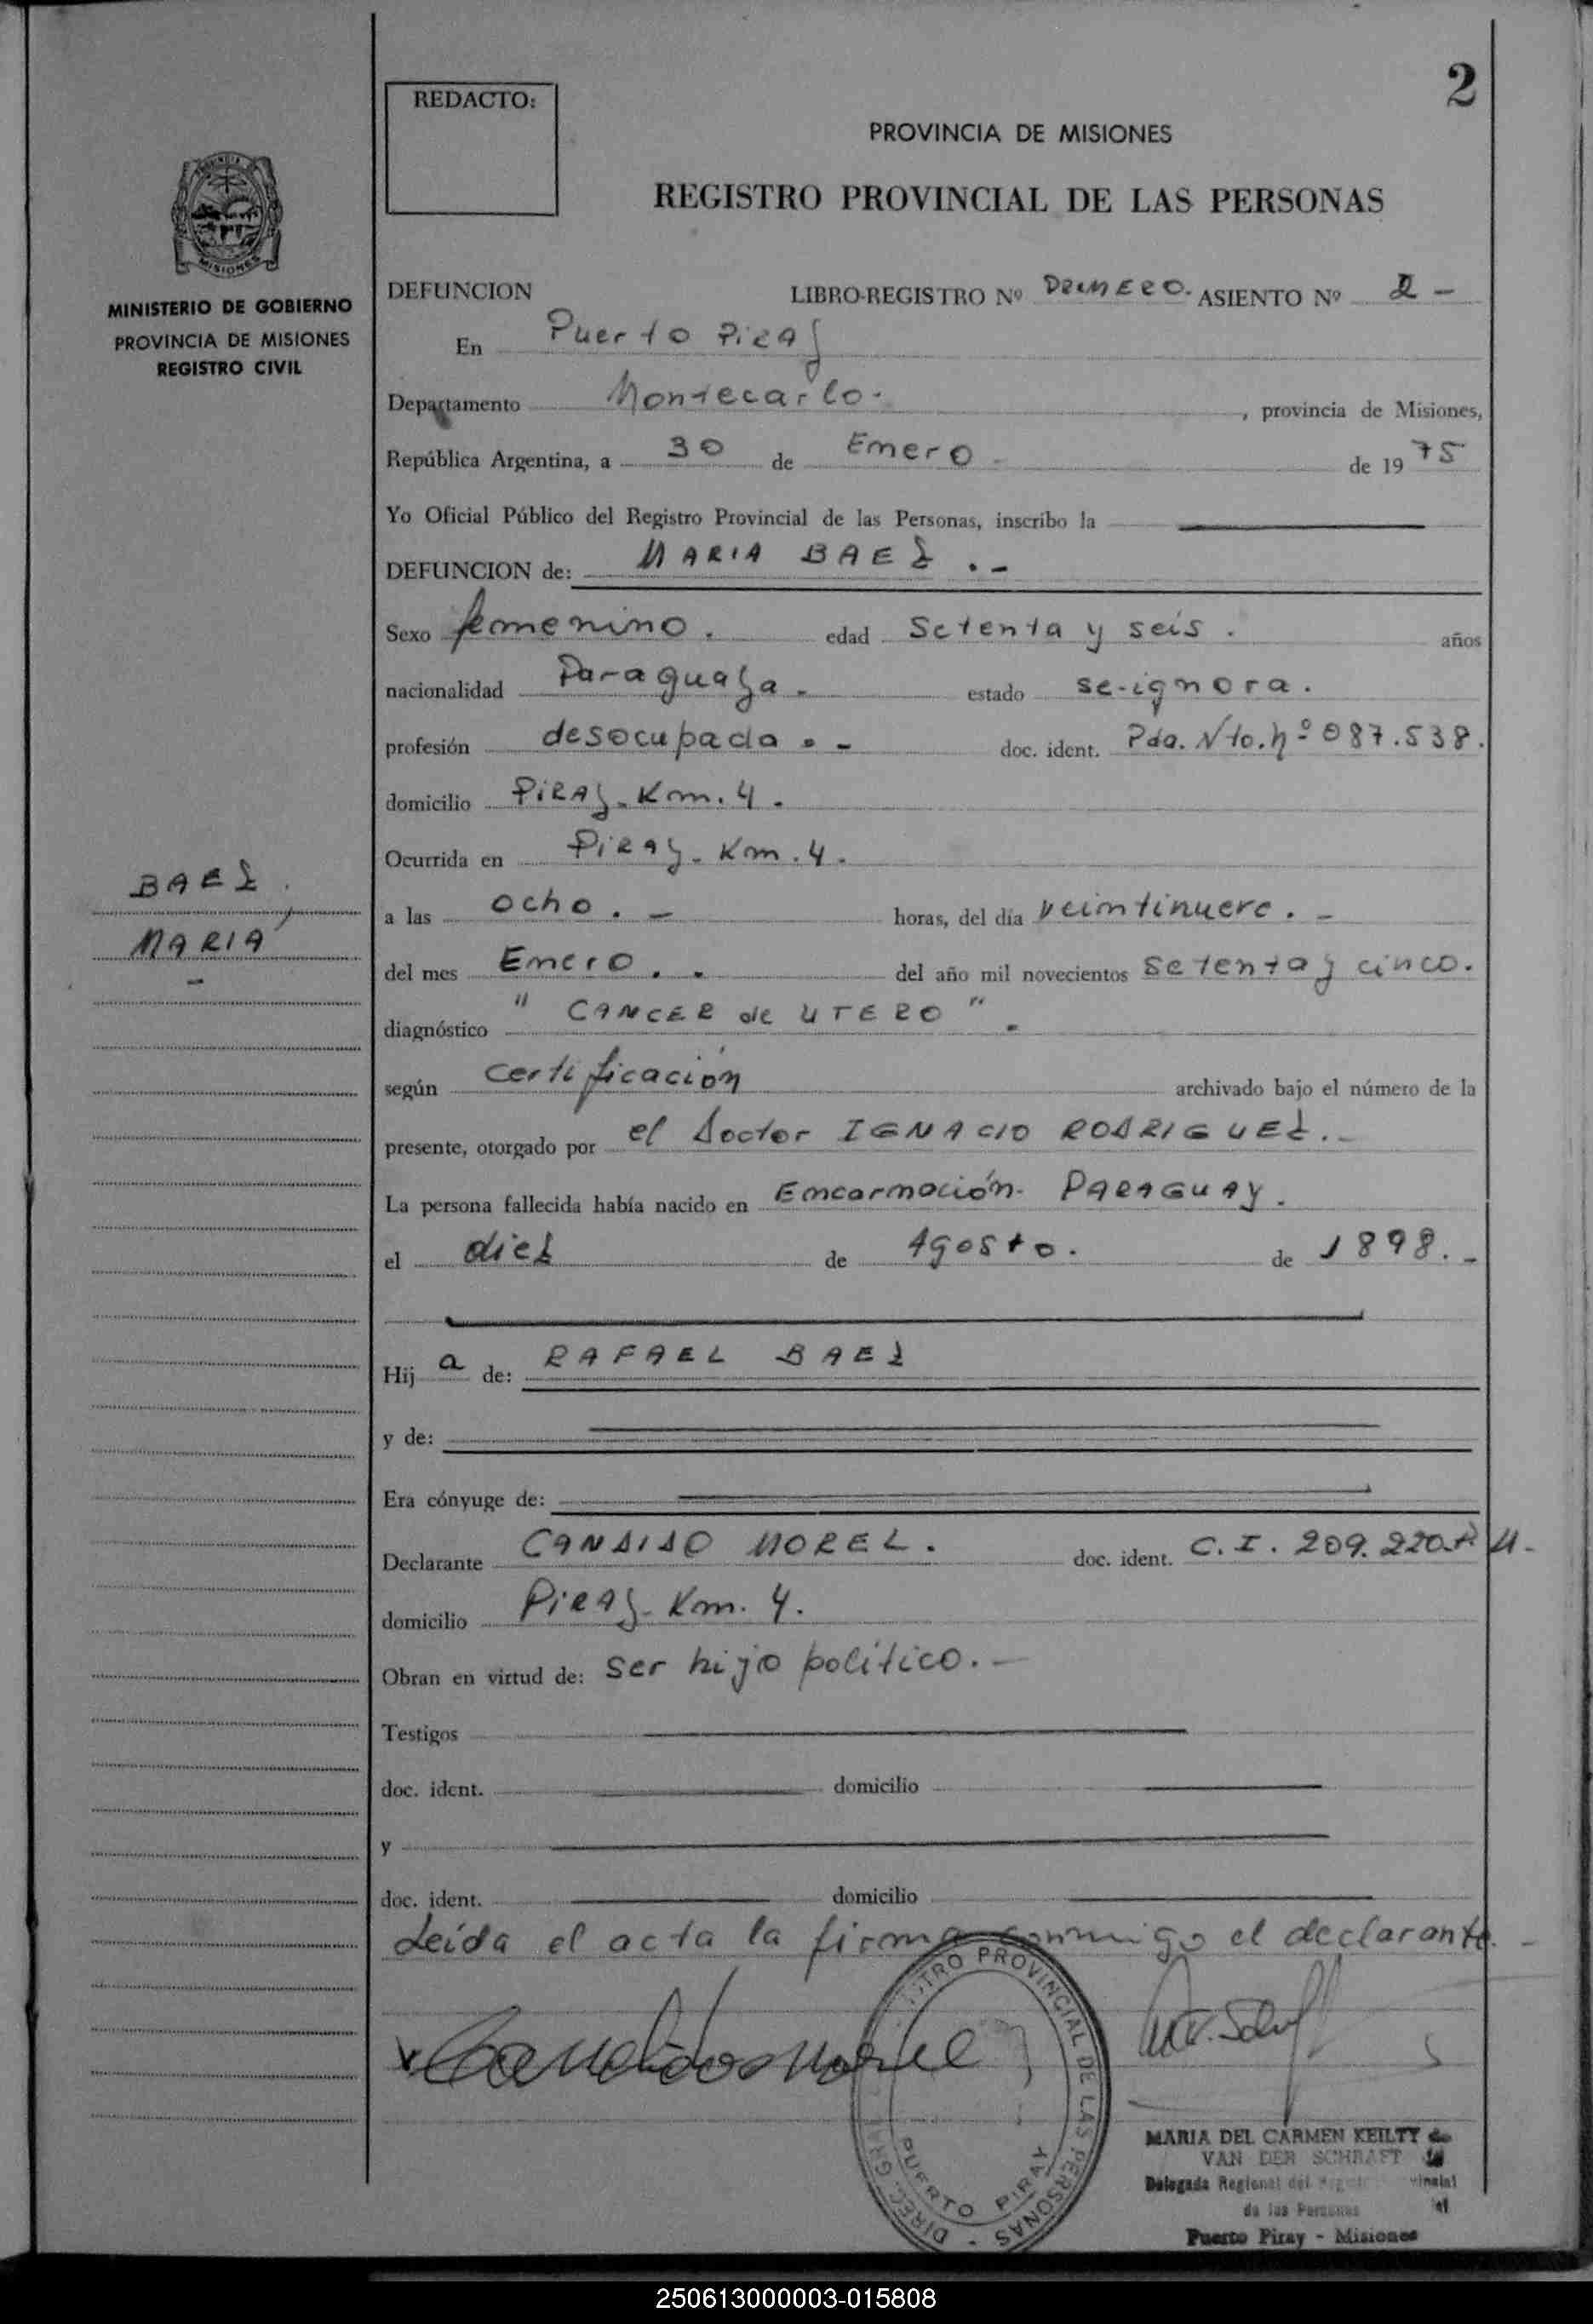 2
REDACTO:
PROVINCIA DE MISIONES
REGISTRO PROVINCIAL DE LAS PERSONAS
MISIONES
MINISTERIO DE GOBIERNO
PROVINCIA DE MISIONES
REGISTRO CIVIL
DEFUNCION LIBRO-REGISTRO Nº PRIMERO. ASIENTO Nº 2 -
En Puerto Piray
Departamento Montecarlo. , provincia de Misiones,
República Argentina, a 30 de Enero - de 1975
Yo Oficial Público del Registro Provincial de las Personas, inscribo la
DEFUNCION de: MARIA BAEZ . -
Sexo femenino. edad Setenta y seis . años
nacionalidad Paraguaya . estado se-ignora .
profesión desocupada . - doc. ident. Pda. Nto. nº 087.538.
domicilio PIRAY - Km. 4 .
Ocurrida en PIRAY - Km. 4 .
BAEZ .
MARIA
-
a las ocho . - horas, del día veintinueve . -
del mes Enero . . del año mil novecientos setenta y cinco.
diagnóstico " CANCER de UTERO " .
según certificación archivado bajo el número de la
presente, otorgado por el Doctor IGNACIO RODRIGUEZ . -
La persona fallecida había nacido en Encarnación - PARAGUAY .
el diez de Agosto . de 1898 . -
Hij a de: RAFAEL BAEZ
y de:
Era cónyuge de:
Declarante CANDIDO MOREL . doc. ident. C.I. 209.220.P M.-
domicilio PIRAY - Km. 4.
Obran en virtud de: ser hijo político . -
Testigos
doc. ident. domicilio
y
doc. ident. domicilio
Leída el acta la firma conmigo el declarante. -
MARIA DEL CARMEN KEILTY de
VAN DER SCHRAFT
Delegada Regional del
de las Personas
Puerto Piray - Misiones
PROVINCIAL DE LAS PERSONAS - DIREC. GRAL.
PUERTO PIRAY
250613000003-015808